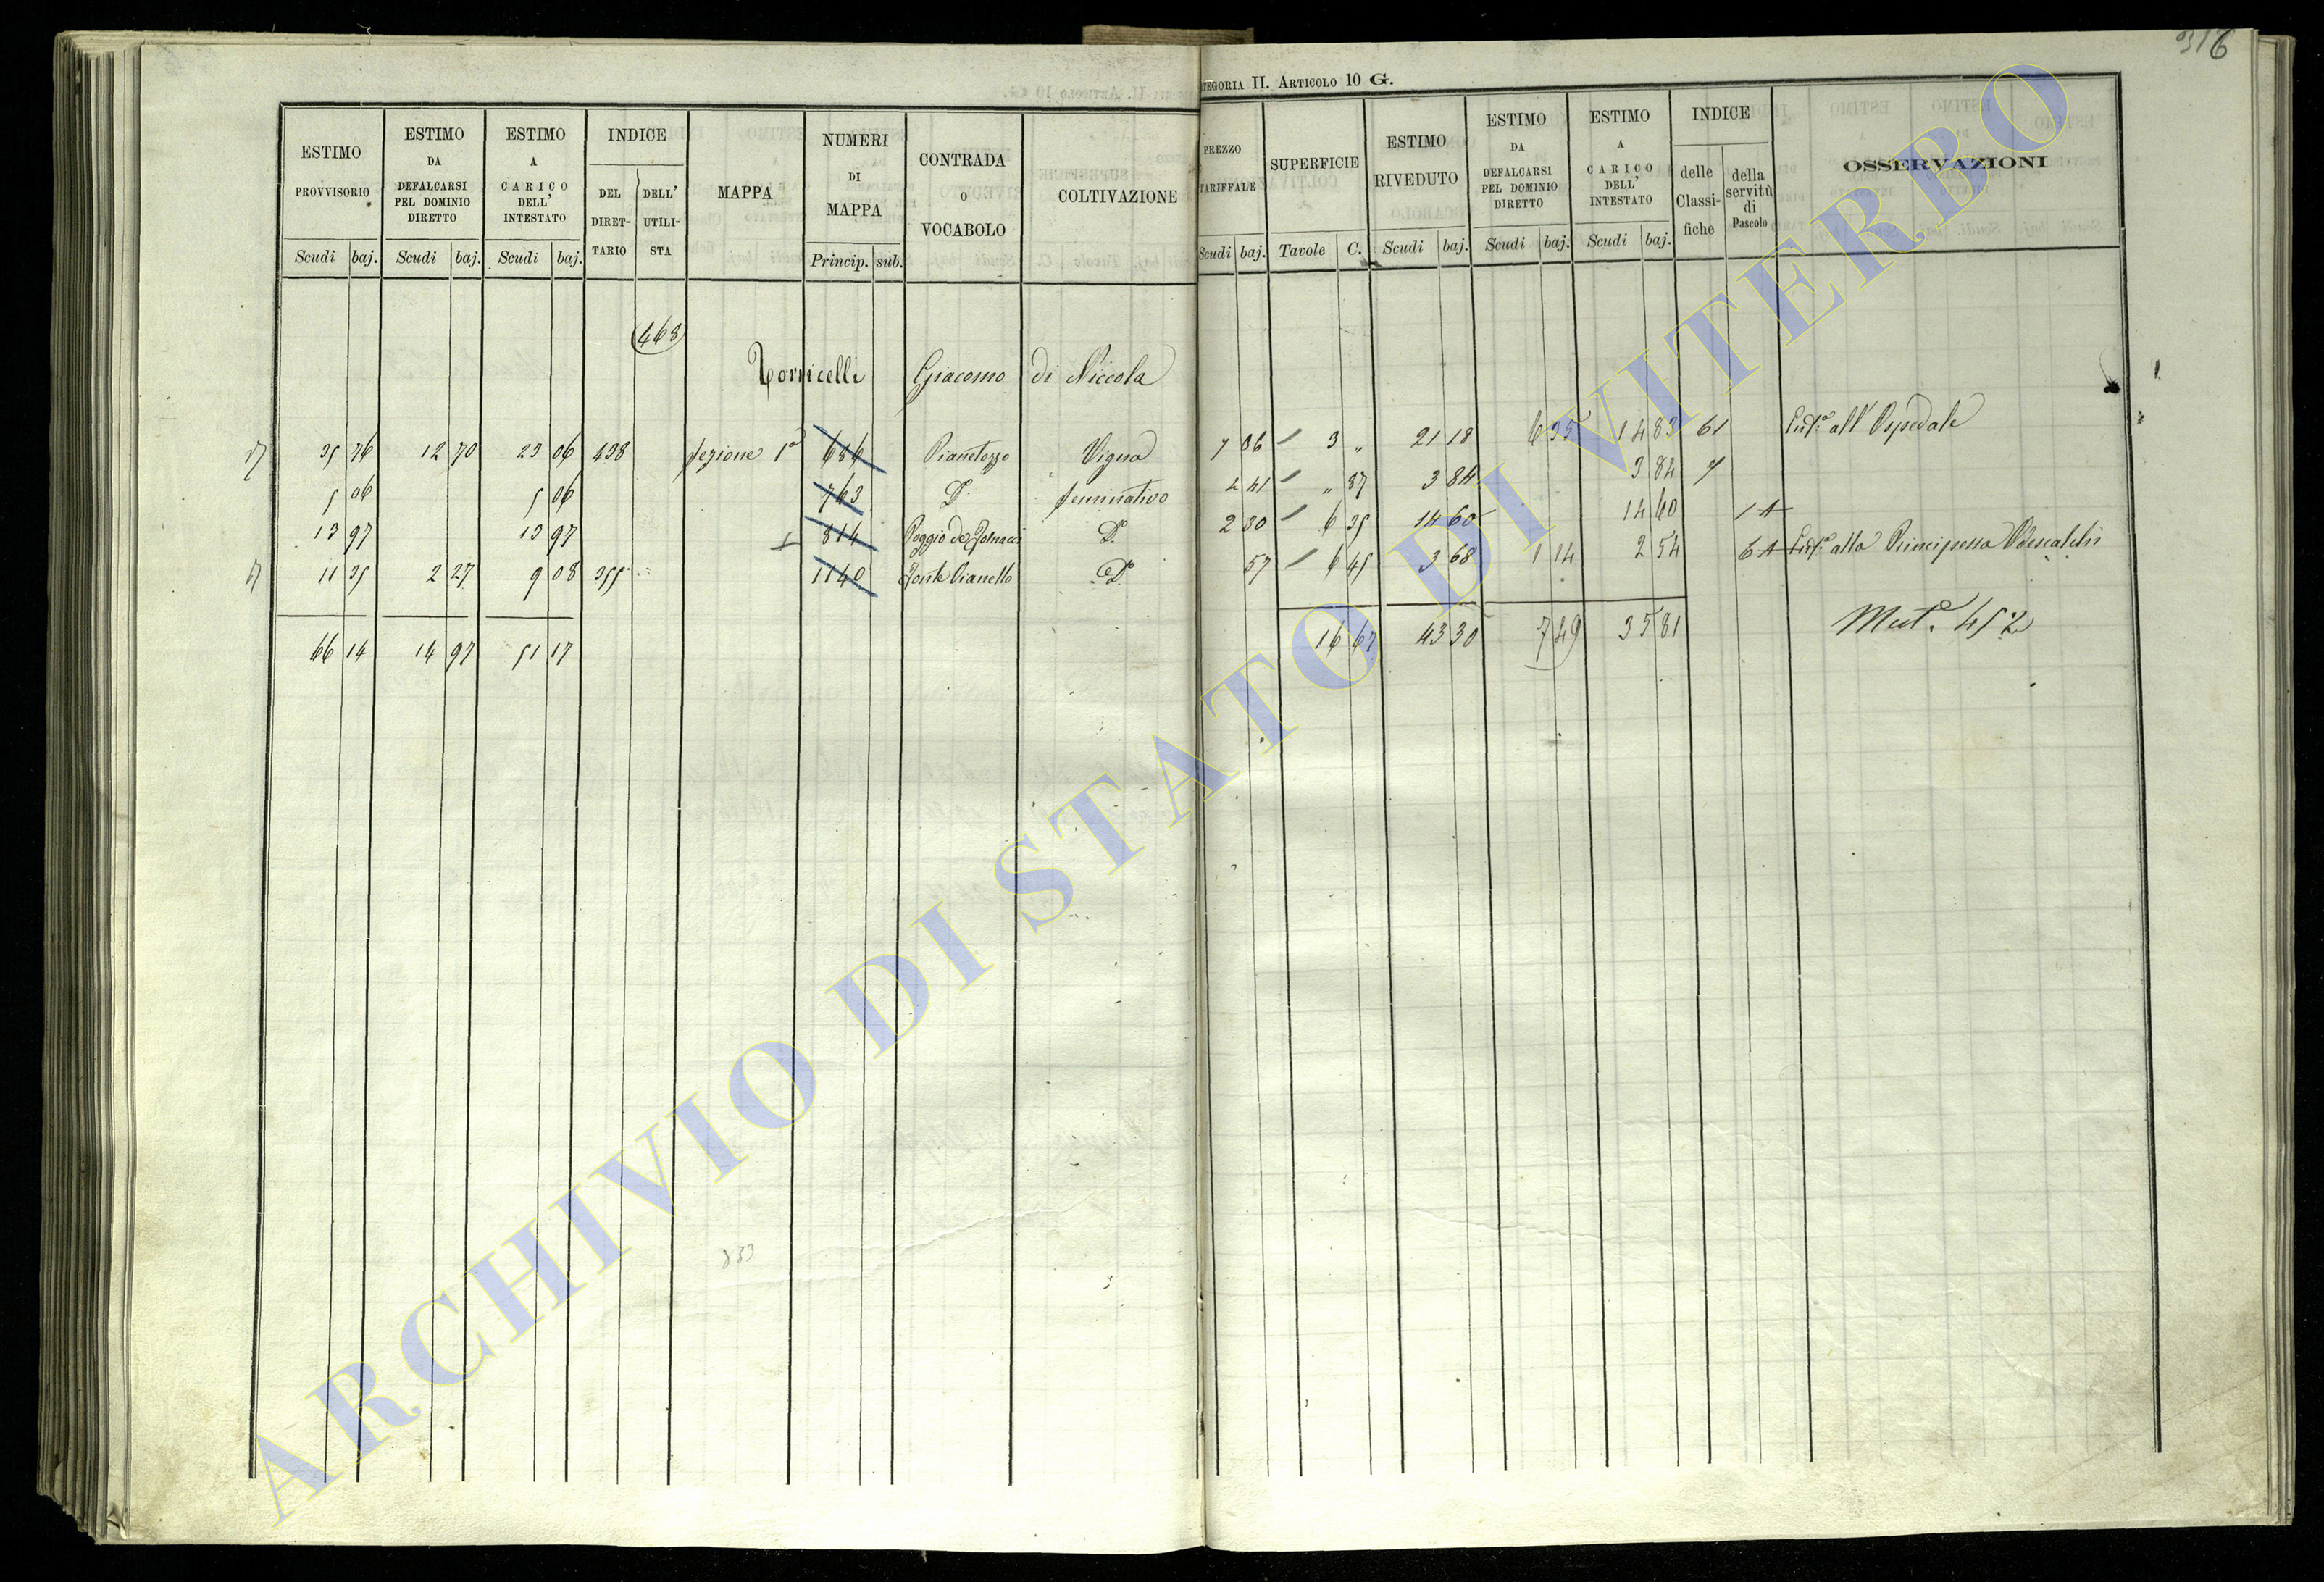 316
TEGORIA II. ARTICOLO 10 G.
ESTIMO PROVVISORIO Scudi baj.
ESTIMO DA DEFALCARSI PEL DOMINIO DIRETTO Scudi baj.
ESTIMO A CARICO DELL' INTESTATO Scudi baj.
INDICE DEL DIRET-TARIO DELL' UTILI-STA
MAPPA
NUMERI DI MAPPA Princip. sub.
CONTRADA o VOCABOLO
COLTIVAZIONE
PREZZO TARIFFALE Scudi baj.
SUPERFICIE Tavole C.
ESTIMO RIVEDUTO Scudi baj.
ESTIMO DA DEFALCARSI PEL DOMINIO DIRETTO Scudi baj.
ESTIMO A CARICO DELL' INTESTATO Scudi baj.
INDICE delle Classi-fiche della servitù di Pascolo
OSSERVAZIONI
468
Torricelli Giacomo di Niccola
35 76 12 70 23 06 438 Sezione 1ª 686 Pianetozze Vigna 7 06 3 „ 21 18 6 35 14 83 61 Enf.ª all' Ospedale
5 06 5 06 763 D.º Seminativo 4 41 „ 87 3 84 3 84 7
13 97 13 97 814 D.º 2 30 6 35 14 60 14 60 1 A
11 35 2 27 9 08 355 1140 Fonte Pianello D.º 57 6 45 3 68 1 14 2 54 6 A Enf.ª alla Principessa Odescalchi
66 14 14 97 51 17 16 67 43 30 7 49 35 81 Mut.º 452
833
ARCHIVIO DI STATO DI VITERBO